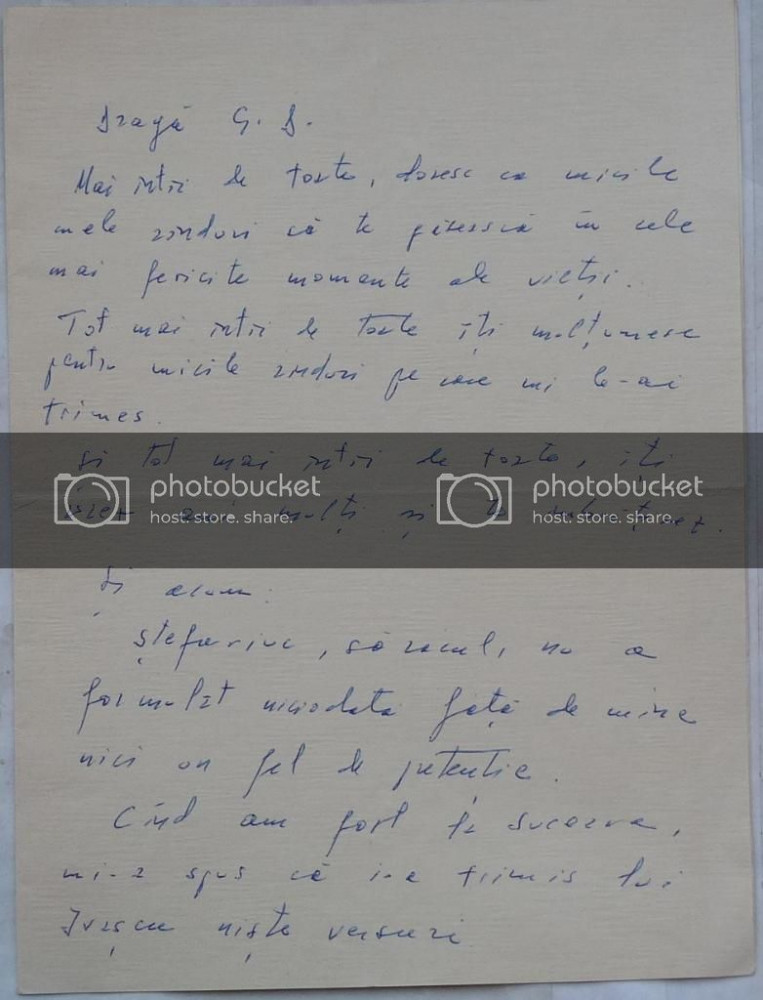 Dragă G. D.
Mai întîi de toate, doresc ca micile
mele rînduri să te găsească în cele
mai fericite momente ale vieții.
Tot mai întîi de toate îți mulțumesc
pentru micile rînduri pe care mi le-ai
trimes.
Și tot mai întîi de toate, îți
photobucket photobucket
host. store. share. host. store. share.
urez ani mulți și te
Și acum:
Ștefariuc, săracul, nu a
formulat niciodată față de mine
nici un fel de pretenție.
Cînd am fost la Suceava,
mi-a spus că i-a trimis lui
niște versuri